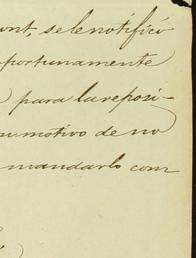 ont, se le notificó
oportunamente
para la reposi-
on motivo de no
mandarlo com